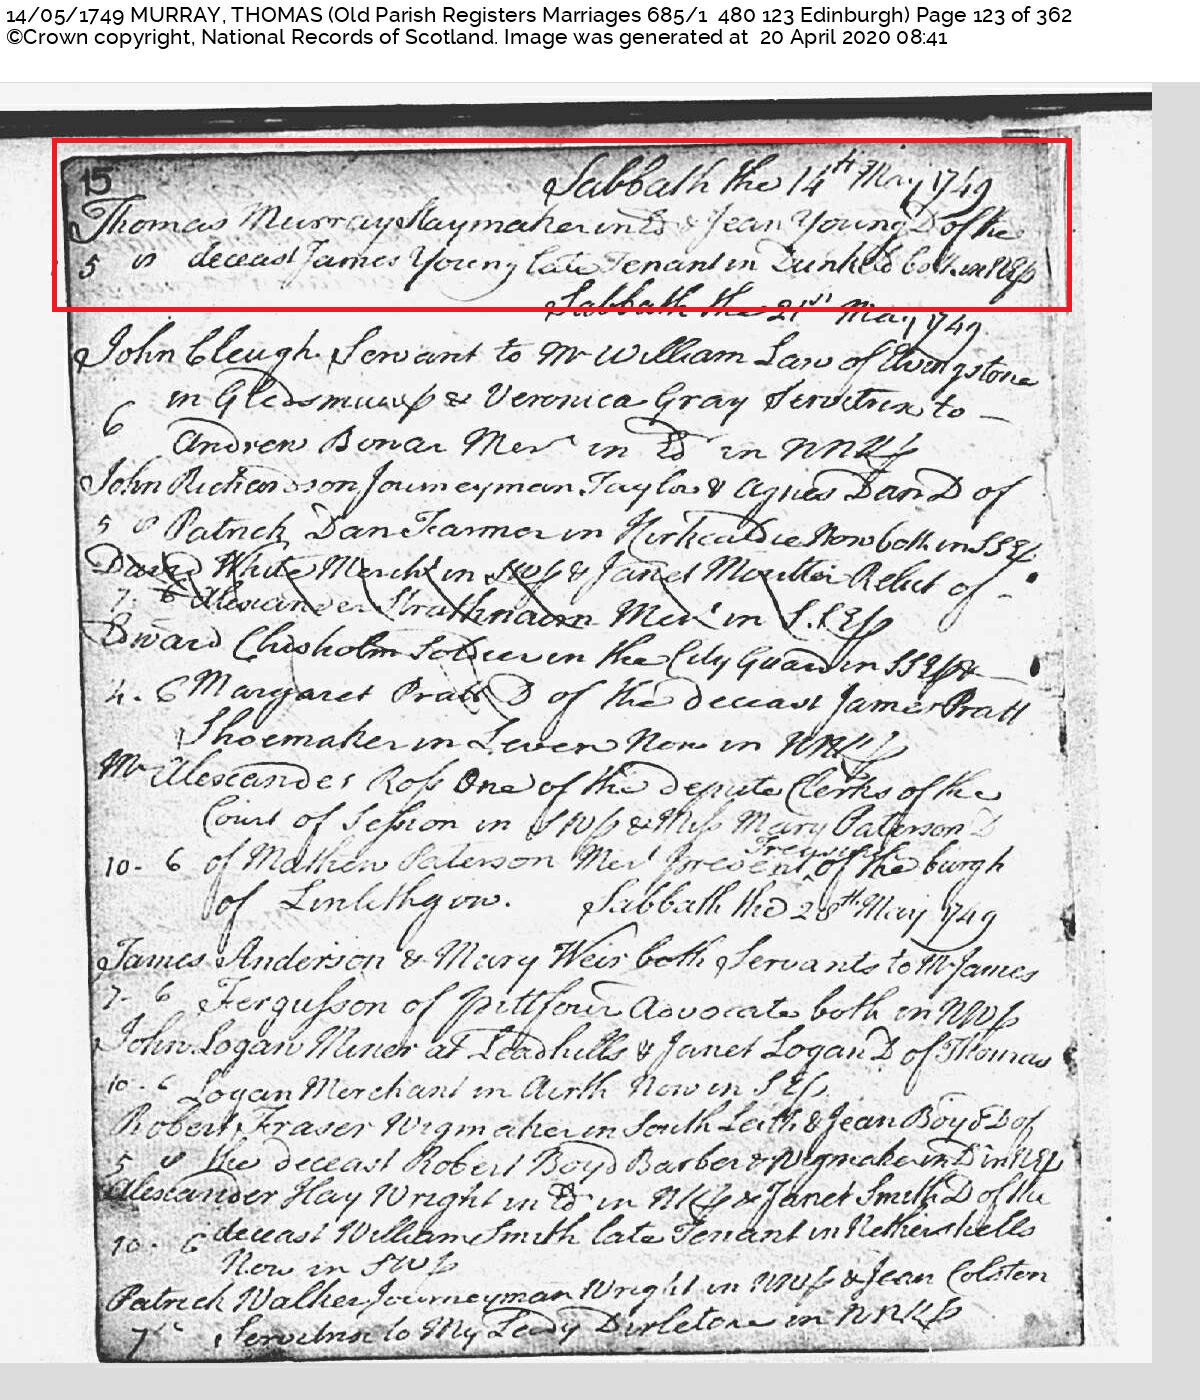 14/05/1749 MURRAY, THOMAS (Old Parish Registers Marriages 685/1 480 123 Edinburgh) Page 123 of 362
©Crown copyright, National Records of Scotland. Image was generated at 20 April 2020 08:41
15 Sabbath the 14th May 1749
Thomas Murray Staymaker in Edr & Jean Young D of the
5 deceast James Young late Tenant in Dunkeld both in
Sabbath the 21st May 1749
John Cleugh Servant to Mr William Law of Elvingstone
in & Veronica Gray Servitrix to
6 Andrew Bonar Mert in Edr in NNKp
John Richardson Journeyman Taylor & Agnes Dan D of
5 Patrick Dan Farmer in Kirkcaldie Now both in SSEp
David White Mercht in SWp & Janet Moutter Relict of
7 - 6 Alexander Strathnairn Mert in S.SEp
Edward Chisholm Soldier in the City Guard in SSEp &
4 - 6 Margaret Pratt D of the deceast James Pratt
Shoemaker in Leven Now in NNKp
Mr Alexander Ross One of the depute Clerks of the
Court of Session in SWp & Miss Mary Paterson D
Treasurer
10 - 6 of Mathew Paterson Mert present of the burgh
of Linlithgow. Sabbath the 28th May 1749
James Anderson & Mary Weir both Servants to Mr James
7 - 6 Fergusson of pittfour Advocate both in NWp
John Logan Miner at Leadhills & Janet Logan D of Thomas
10 - 6 Logan Merchant in Airth Now in SEp
Robert Fraser Wigmaker in South Leith & Jean Boyd D of
5 the deceast Robert Boyd Barber & Wigmaker in Edr in NEp
Alexander Hay Wright in Edr in NKp & Janet Smith D of the
deceast William Smith late Tenant in Nethershells
10 - 6 Now in SWp
Patrick Walker Journeyman Wright in NWp & Jean Colston
7 Servitrix to My Lady Dirletone in NNKp